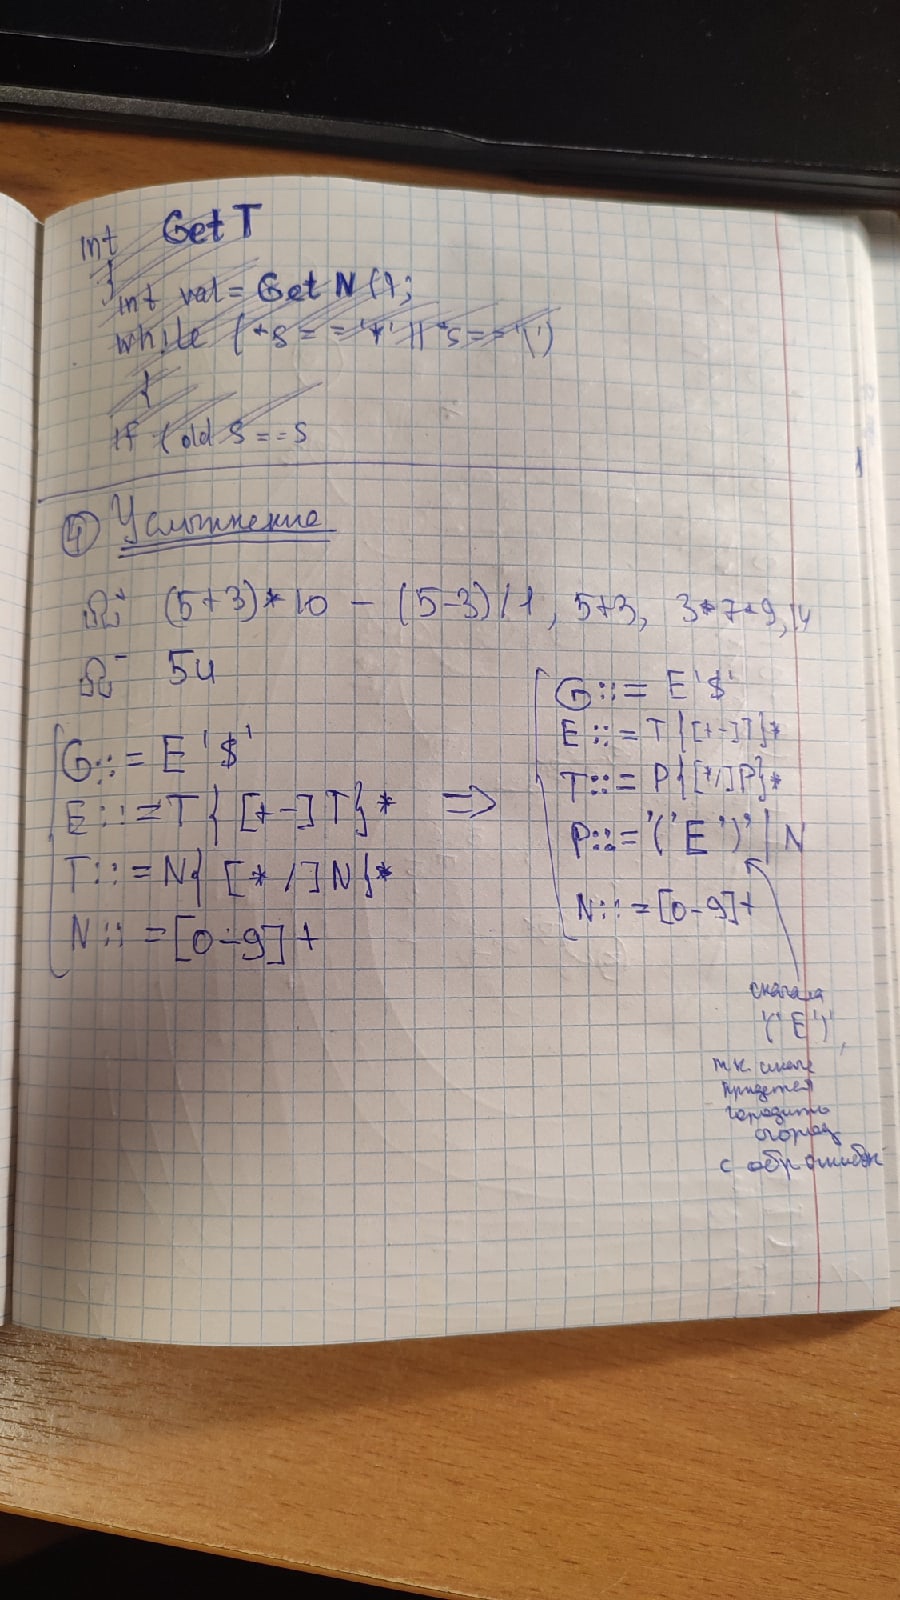 int GetT
{
int val = GetN();
while (*s == '*' || *s == '\')
{
if (old s == s
④ Усложнение
Ω⁺ (5+3)*10 - (5-3)/1, 5+3, 3*7*9, 14
Ω⁻ 5ч
G::= E'$'
E::=T{[+-]T}*
T::=N{[*/]N}*
N::=[0-9]+
⇒
G::= E'$'
E::=T{[+-]T}*
T::= P{[*/]P}*
P::='('E')' | N
N::=[0-9]+
сначала
'('E')',
т.к. иначе
придется
городить
огород
с обр ошибок